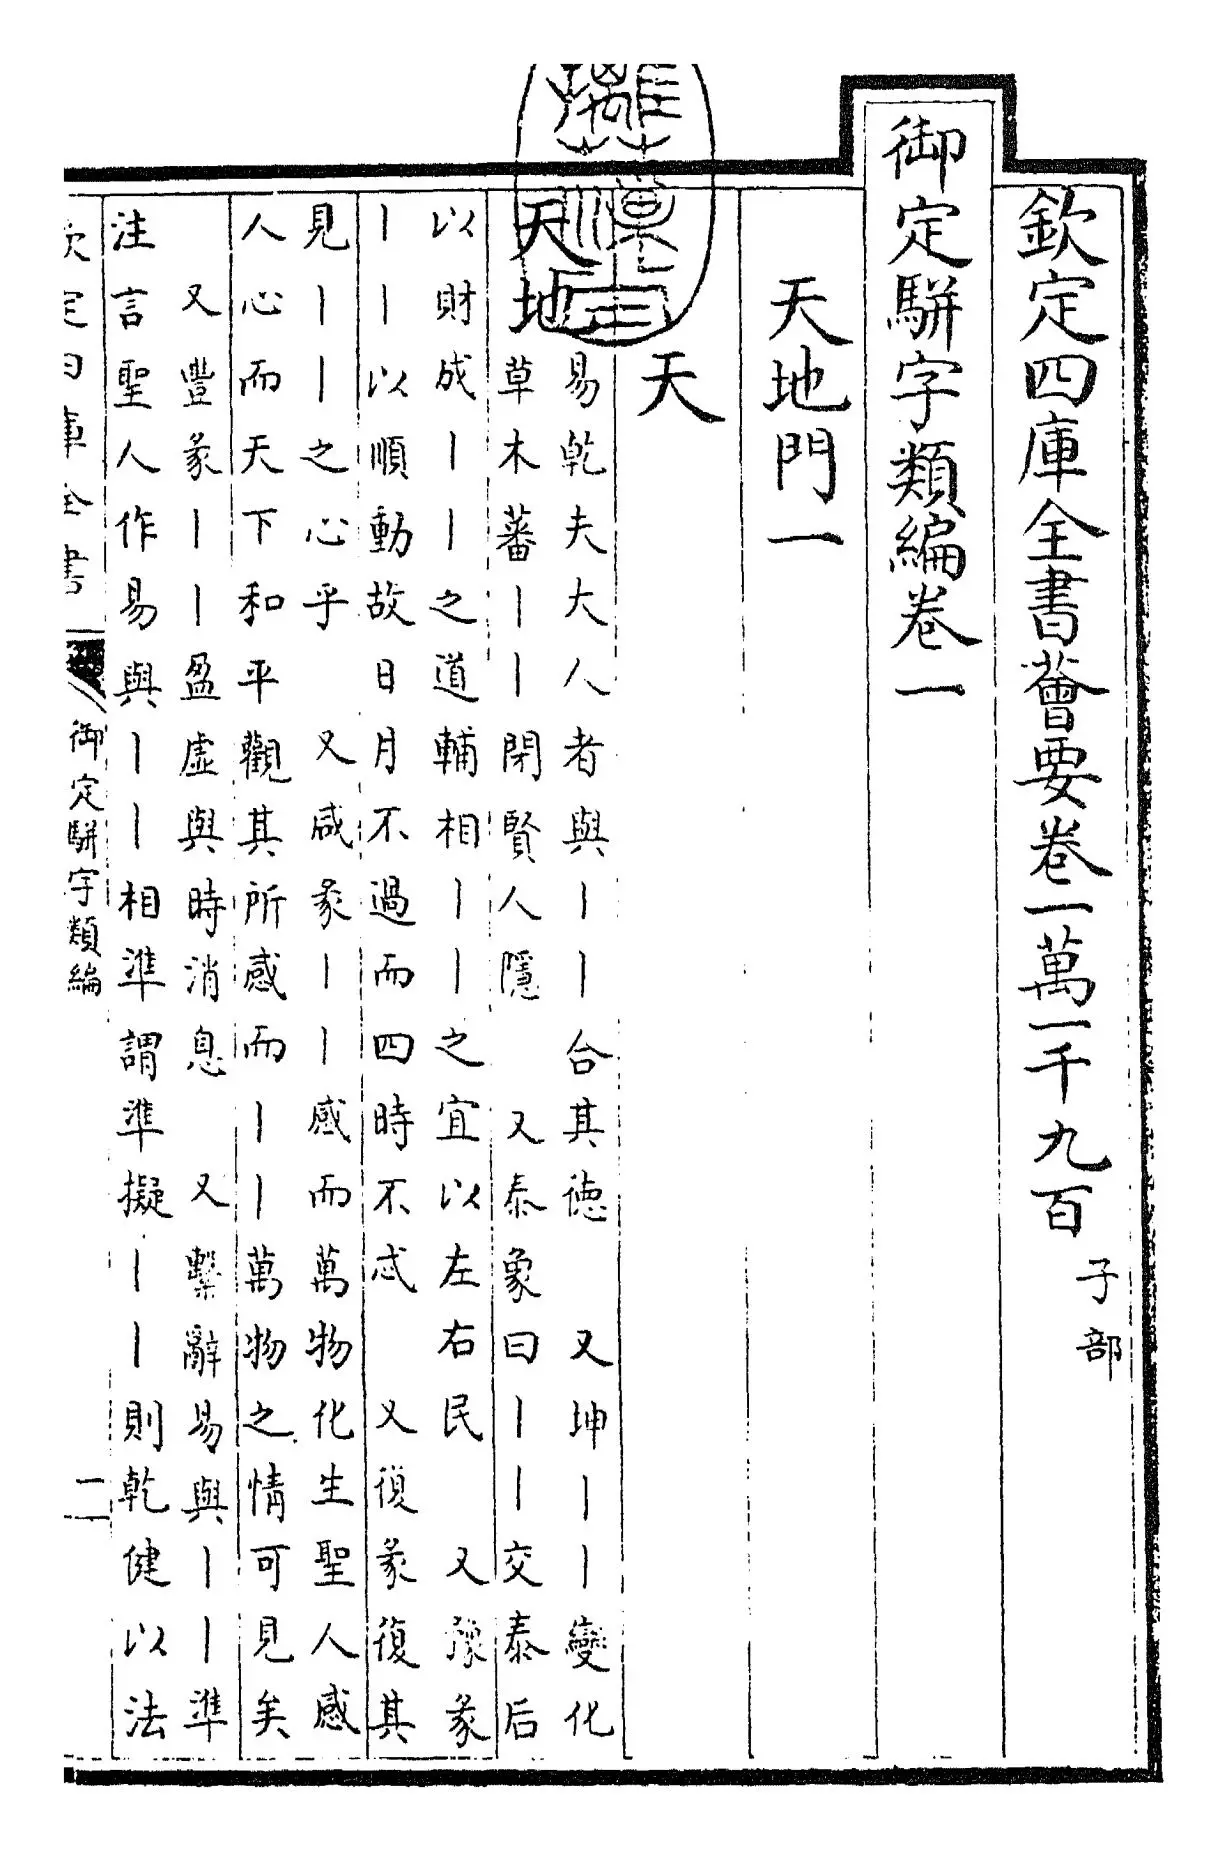 欽定四庫全書薈要卷一萬一千九百 子部
御定駢字類編卷一
天地門一
天
天地
易乾夫大人者與丨丨合其徳 又坤丨丨變化
草木蕃丨丨閉賢人隱 又泰象曰丨丨交泰后
以財成丨丨之道輔相丨丨之宜以左右民 又豫彖
丨丨以順動故日月不過而四時不忒 又復彖復其
見丨丨之心乎 又咸彖丨丨感而萬物化生聖人感
人心而天下和平觀其所感而丨丨萬物之情可見矣
又豐彖丨丨盈虛與時消息 又繫辭易與丨丨準
注言聖人作易與丨丨相準謂準擬丨丨則乾健以法
欽定四庫全書
御定駢字類編
一